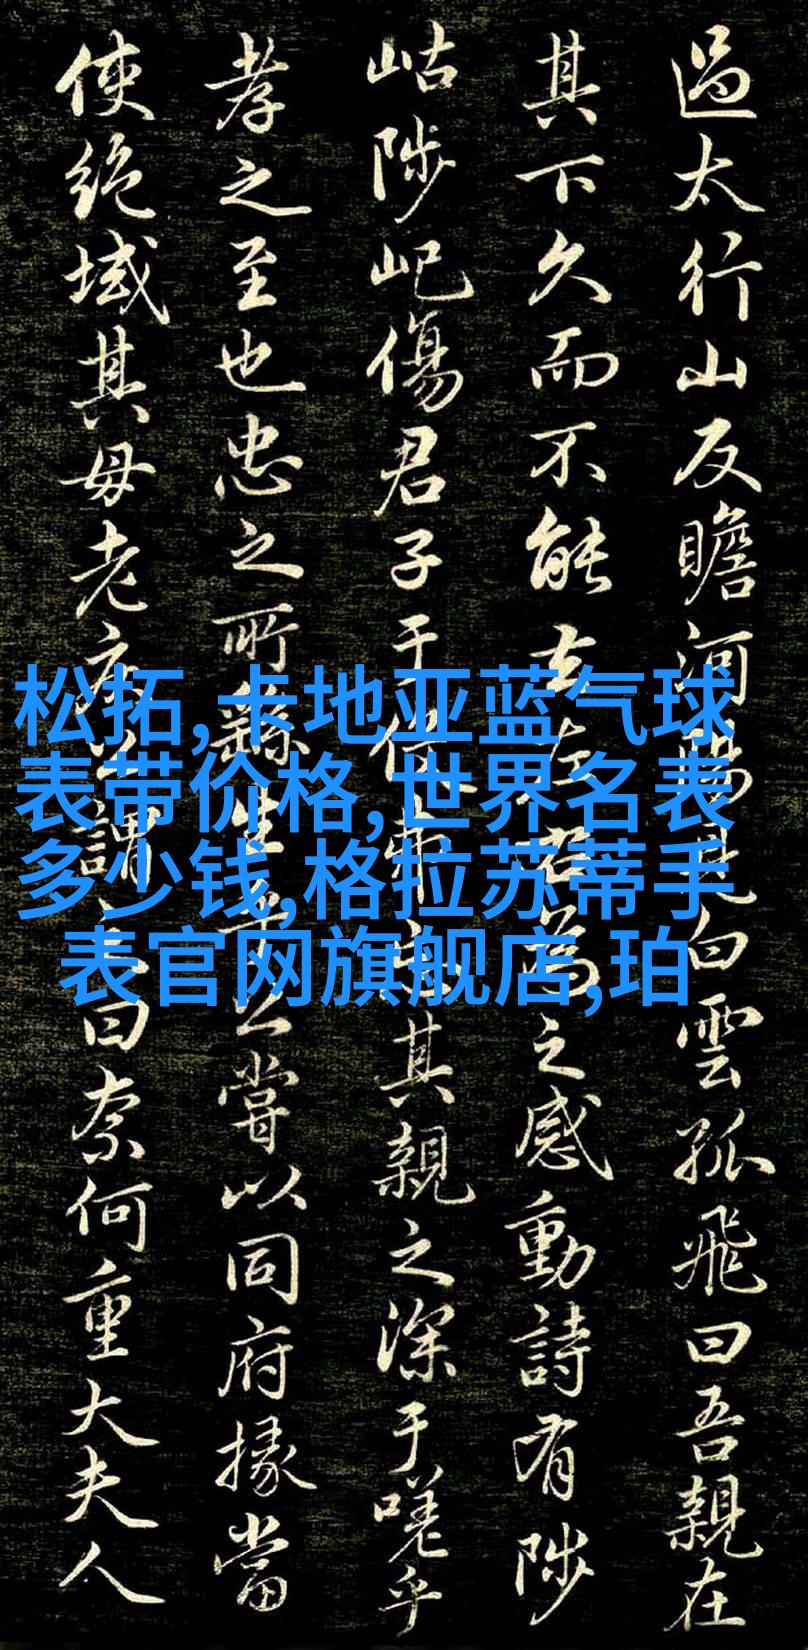 過太行山反瞻河陽見白雲孤飛曰吾親在
其下久而不能去左右為之感動詩有陟
岵陟屺傷君子于其親之深于嗟乎
孝之至也忠之所繇生乎公嘗以同府掾當
使絕域其母老疾公謂之曰奈何重大夫人
松拓,卡地亚蓝气球
表带价格,世界名表
多少钱,格拉苏蒂手
表官网旗舰店,珀